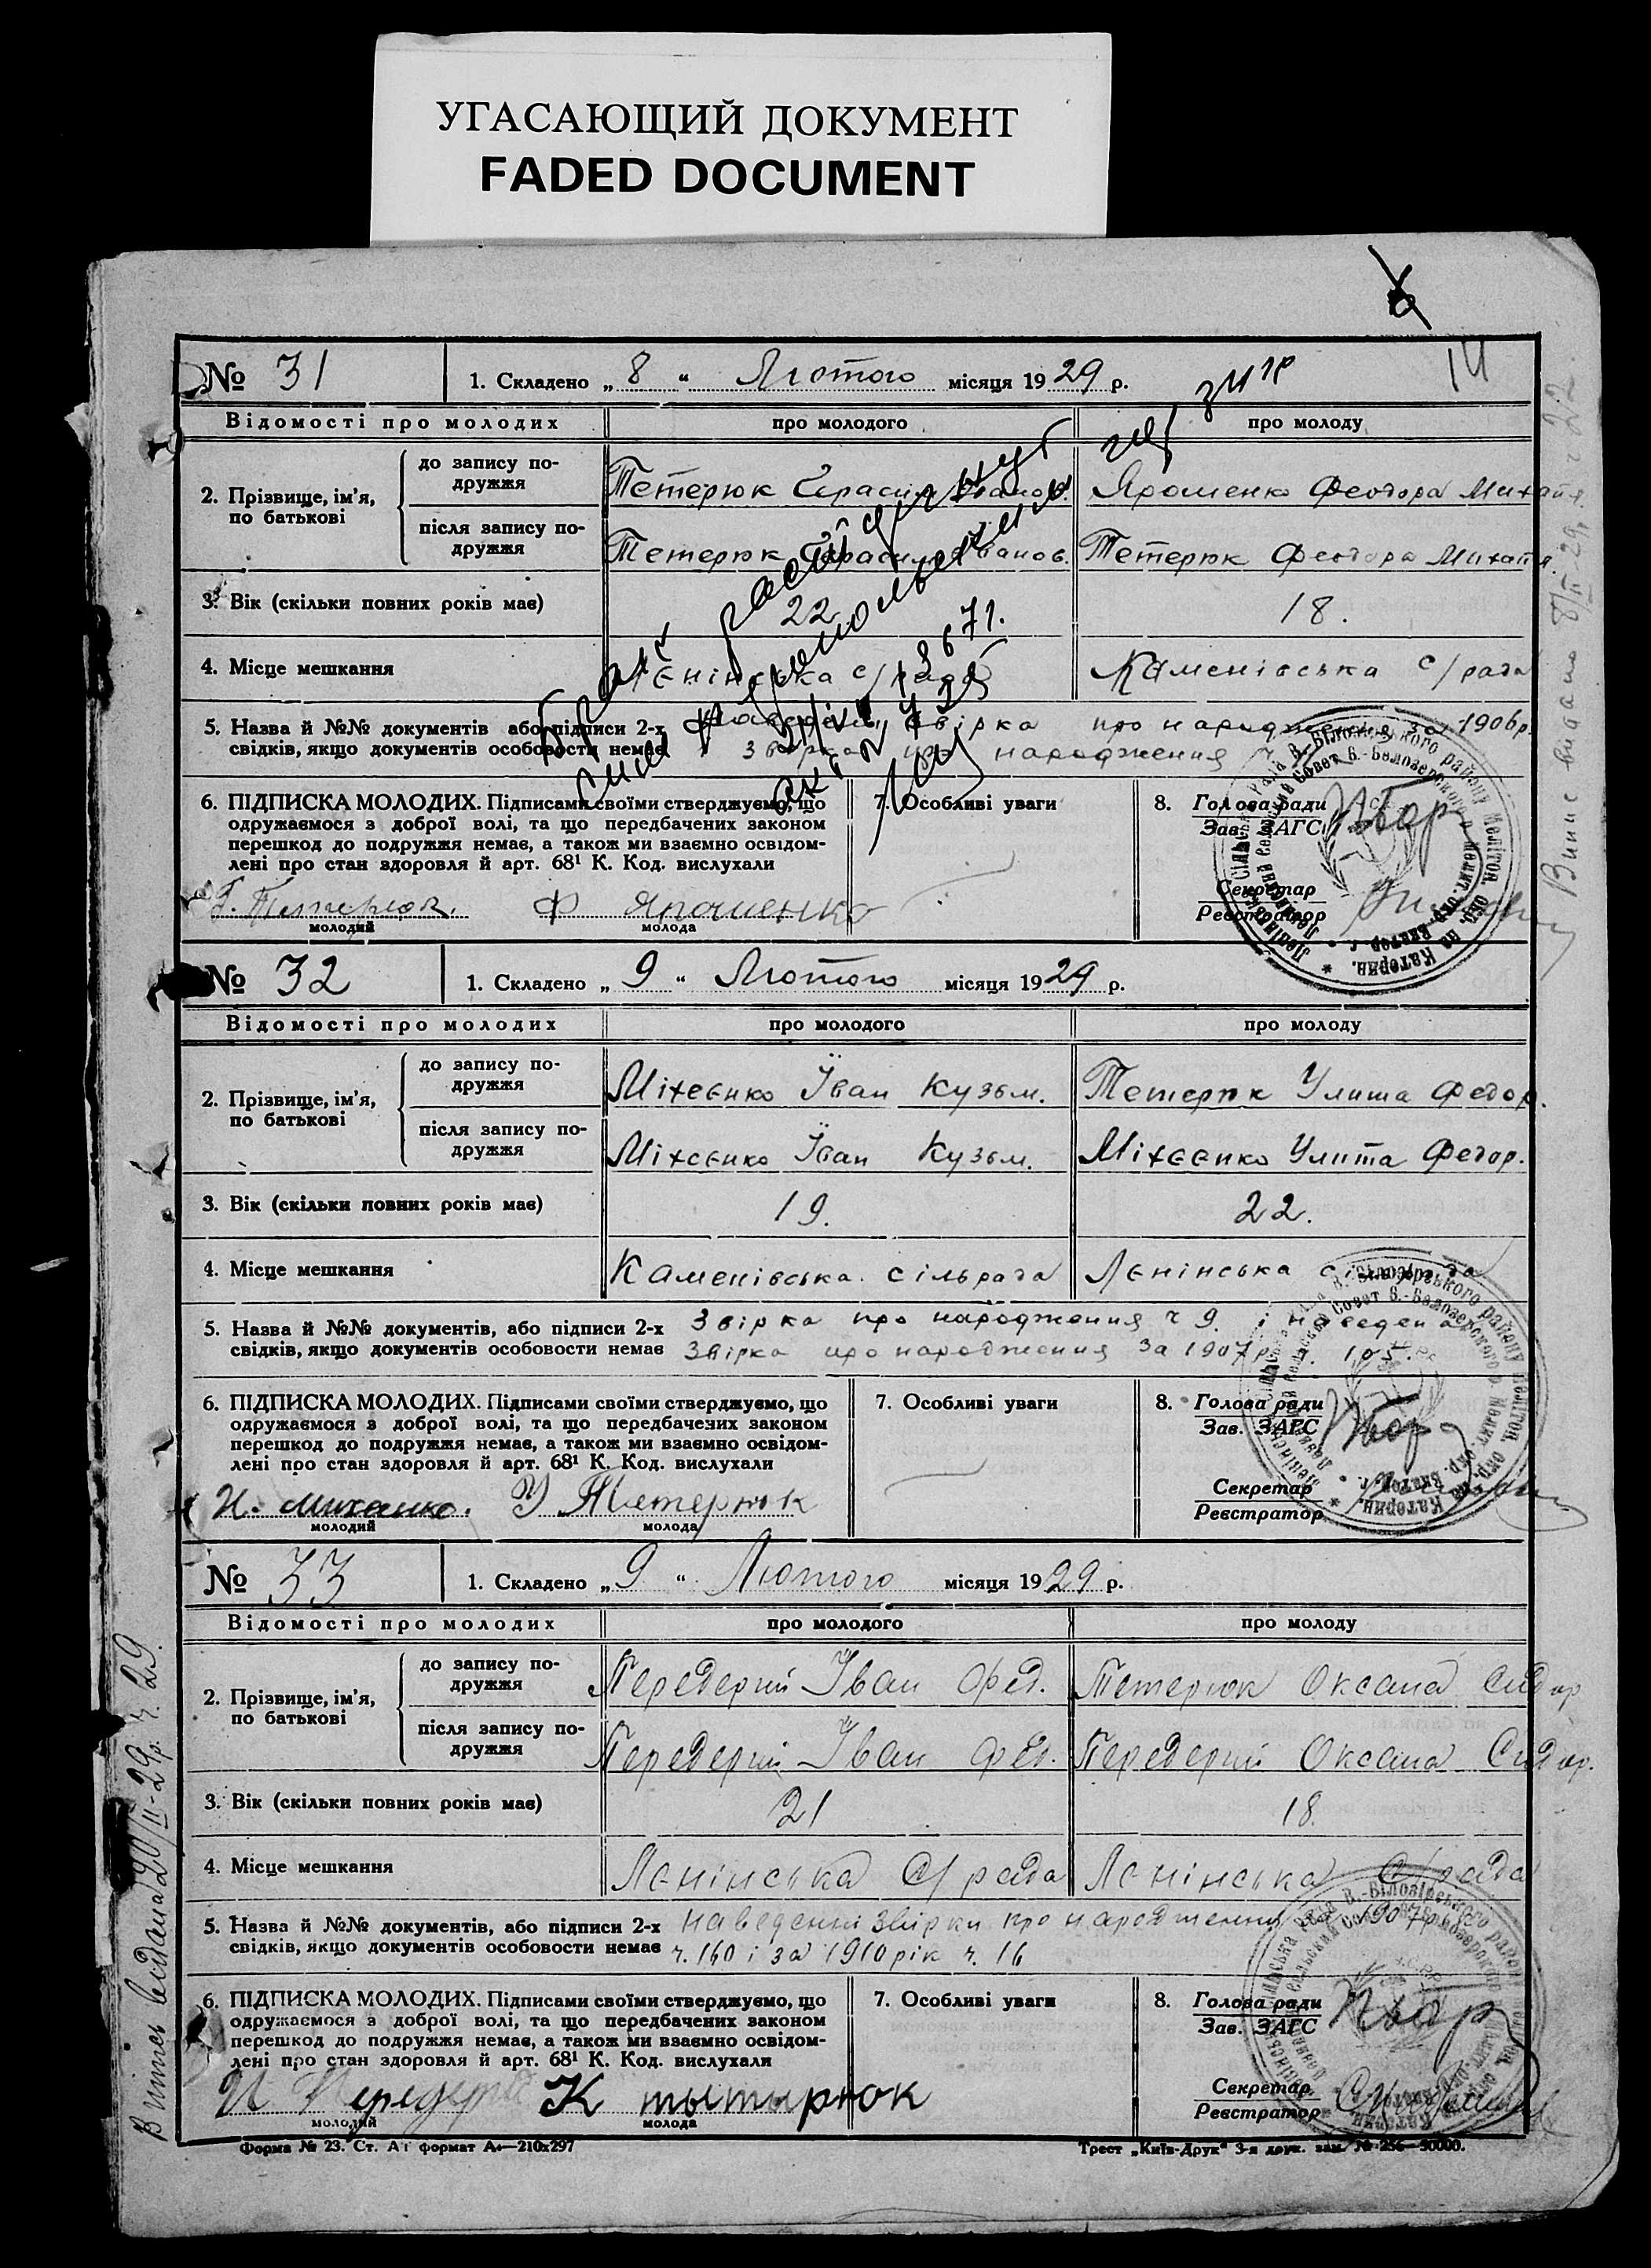 УГАСАЮЩИЙ ДОКУМЕНТ
FADED DOCUMENT
14
№ 31 1. Складено „ 8 “ Лютого місяця 1929 р.
Відомості про молодих про молодого про молоду
2. Прізвище, ім’я, по батькові
до запису подружжя Тетерюк Герасим Іванов. Ярошенко Феодора Михайл
після запису подружжя Тетерюк Герасим Іванов. Тетерюк Феодора Михайл.
3. Вік (скільки повних років має) 22 18.
4. Місце мешкання Лєнінська с/рада Каменівська с/рада
5. Назва й №№ документів або підписи 2-х Наведена звірка про народження за 1906 р.
свідків, якщо документів особовости немає звірка про народження
Брак расторгнут
6. ПІДПИСКА МОЛОДИХ. Підписами своїми стверджуємо, що
одружаємося з доброї волі, та що передбачених законом
перешкод до подружжя немає, а також ми взаємно освідом-
лені про стан здоровля й арт. 68¹ К. Код. вислухали
Г. Тетерюк. Ф Ярошенко
молодий молода
7. Особливі уваги
8. Голова ради
Зав. ЗАГС
Секретар
Реєстратор
№ 32 1. Складено „ 9 “ Лютого місяця 1929 р.
Відомості про молодих про молодого про молоду
2. Прізвище, ім’я, по батькові
до запису подружжя Міхеєнко Їван Кузьм. Тетерюк Улита Федор.
після запису подружжя Міхеєнко Їван Кузьм. Міхеєнко Улита Федор.
3. Вік (скільки повних років має) 19. 22.
4. Місце мешкання Каменівська сільрада Лєнінська сільрада
5. Назва й №№ документів, або підписи 2-х Звірка про народження ч 9. і наведена
свідків, якщо документів особовости немає Звірка про народження за 1907 р. ч. 105.
6. ПІДПИСКА МОЛОДИХ. Підписами своїми стверджуємо, що
одружаємося з доброї волі, та що передбачених законом
перешкод до подружжя немає, а також ми взаємно освідом-
лені про стан здоровля й арт. 68¹ К. Код. вислухали
И. Михаенко. У Тетерюк
молодий молода
7. Особливі уваги
8. Голова ради
Зав. ЗАГС
Секретар
Реєстратор
№ 33 1. Складено „ 9 “ Лютого місяця 1929 р.
Відомості про молодих про молодого про молоду
2. Прізвище, ім’я, по батькові
до запису подружжя Передерий Їван Фед. Тетерюк Оксана Сидор
після запису подружжя Передерий Їван Фед. Передерий Оксана Сидор.
3. Вік (скільки повних років має) 21 18.
4. Місце мешкання Лєнінська С/рада Лєнінська С/рада
5. Назва й №№ документів, або підписи 2-х наведенні звірки про народження 1907 р.
свідків, якщо документів особовости немає ч. 160 і за 1910 рік ч. 16
6. ПІДПИСКА МОЛОДИХ. Підписами своїми стверджуємо, що
одружаємося з доброї волі, та що передбачених законом
перешкод до подружжя немає, а також ми взаємно освідом-
лені про стан здоровля й арт. 68¹ К. Код. вислухали
И Передерий К тытырюк
молодий молода
7. Особливі уваги
8. Голова ради
Зав. ЗАГС
Секретар
Реєстратор
Форма № 23. Ст. А4 формат А4—210x297 Трест „Київ-Друк“ 3-я друк. зам. № 256—50000.
Випись видана 20/II-29 р. ч. 29.
Випис видано 8/II-29 р. ч 22